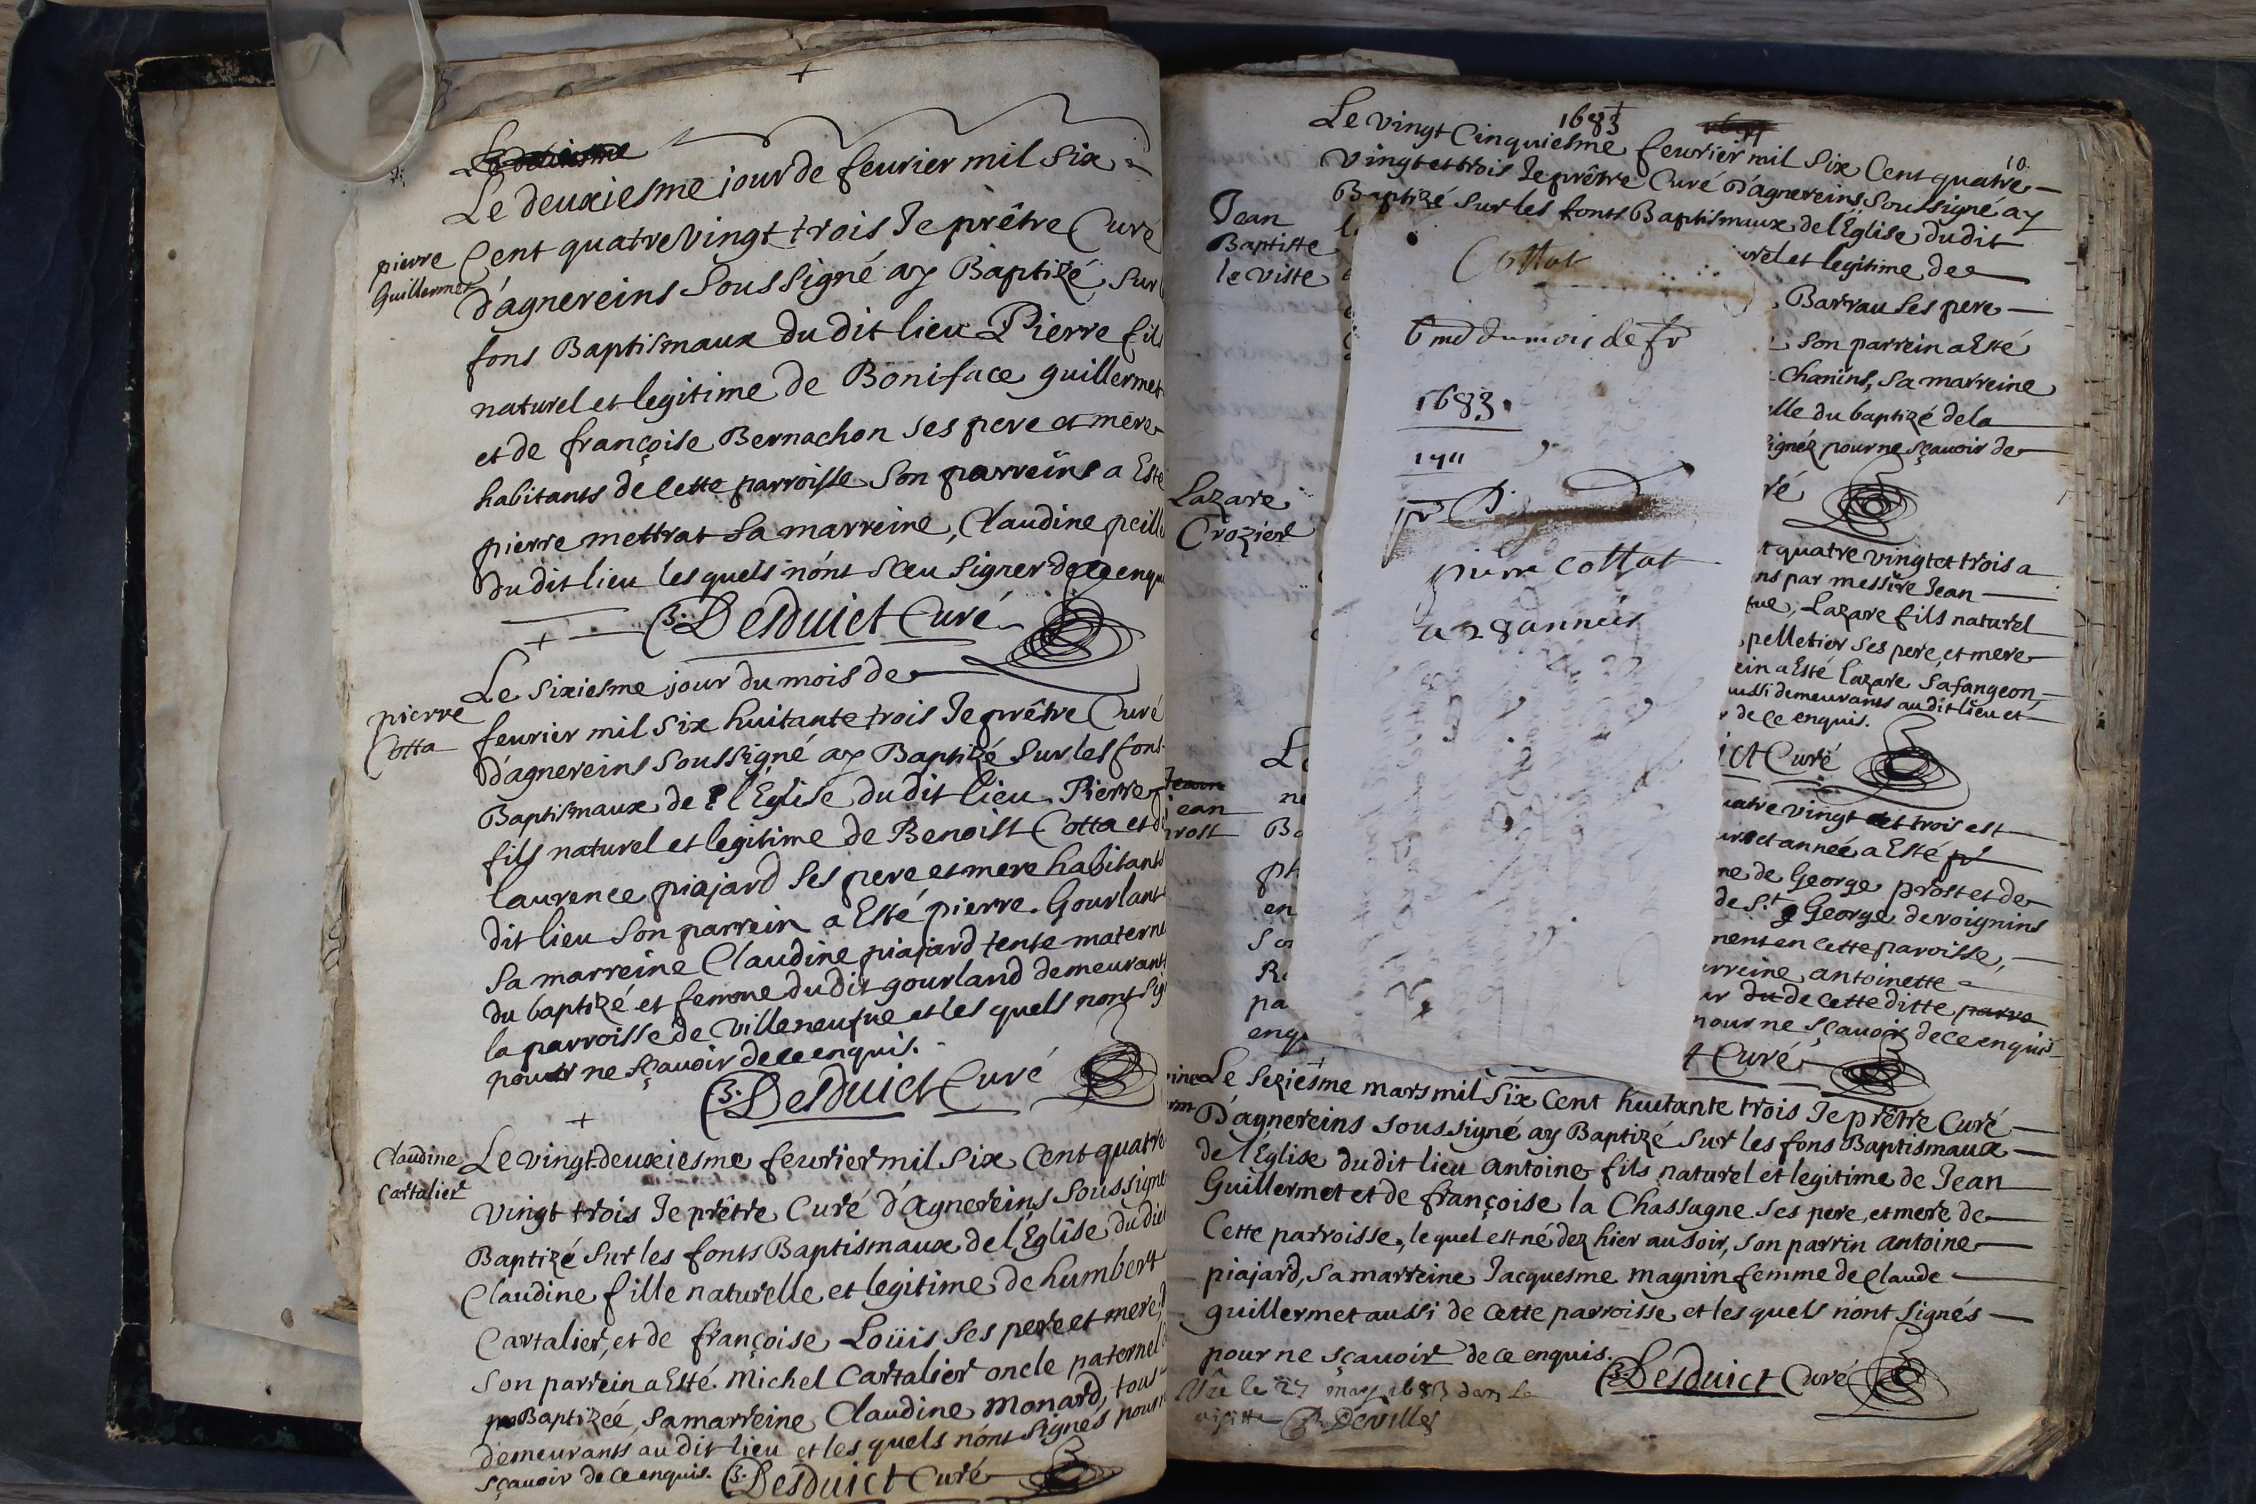 Le deuxiesme jour de feurier mil six
pierre
Guillermet
Cent quatre Vingt trois Je prêtre Curé
d'agnereins Soussigné ay Baptizé sur
fons Baptismaux du dit lieu Pierre fils
naturel et legitime de Boniface guillermet
et de françoise Bernachon ses pere et mere
habitants de Cette parroisse Son parreins a Esté
pierre mettrat Sa marreine, Claudine peill
du dit lieu les quels n'ont sceu signer de ce enqu
Desduict Curé
Le Sixiesme jour du mois de
pierre
Cotta
feurier mil six huitante trois Je prêtre Curé
d'agnereins soussigné ay Baptizé sur les fons
Baptismaux de l'Eglise du dit lieu Pierre
fils naturel et legitime de Benoist Cotta et de
laurence piajard ses pere et mere habitants
dit lieu son parrein a Esté pierre Gourlant
sa marreine Claudine piajard tente materne
du baptizé et femme du dit gourland demeurant
la parroisse de Villeneufue et les quels nont sig
pour ne sçauoir de ce enquis.
Desduict Curé
Claudine
Cartalier
Le vingt-deuxiesme feurier mil six Cent quatre
vingt trois Je prêtre Curé d'agnereins soussigné
Baptizé sur les fonts Baptismaux de l'Eglise du dict
Claudine fille naturelle et legitime de humbert
Cartalier, et de françoise Loüis ses pere et mere
son parrein a Esté Michel Cartalier oncle paternel
Baptizeé, sa marreine Claudine Monard, tous
demeurants au dit lieu et les quels n'ont signés pour
sçauoir de ce enquis. Desduict Curé
1683
10.
Le vingt Cinquiesme feurier mil six Cent quatre
vingt et trois Je prêtre Curé d'agnereins Soussigné ay
Baptizé sur les fonts Baptismaux de l'Eglise du dit
Jean
Baptiste
le Viste
urel et legitime de
Barrau ses pere
son parrein a Esté
Chanins, sa marreine
elle du baptizé de la
signéz pour ne sçauoir de
ré
Lazare
Crozier
t quatre vingt et trois a
ns par messire Jean
Lazare fils naturel
pelletier ses pere, et mere
ein a Esté lazare Safangeon
ussi demeurants au dit lieu et
de ce enquis.
ict Curé
jean
prost
uatre vingt et trois est
ur et année a Esté
ne de George prost et de
de St George de roignins
ment en cette paroisse,
rreine antoinette
ur de cette ditte
pour ne sçauoir de ce enquis
t Curé
Cottat
6me du mois de fr
1683.
1711
pierre Cottat
a 28 années
Le seziesme mars mil six cent huitante trois Je prêtre Curé
D'agnereins soussigné ay Baptizé sur les fons Baptismaux
de l'Eglise du dit lieu antoine fils naturel et legitime de Jean
Guillermet et de françoise la Chassagne ses pere, et mere de
Cette parroisse, le quel est né dez hier au soir, son parrin antoine
piajard, sa marreine Jacquesme magnin femme de Claude
guillermet aussi de cette parroisse et les quels n'ont signés
pour ne sçauoir de ce enquis.
Desduict Curé
le 27 may 1683 dans la
visitte Deville